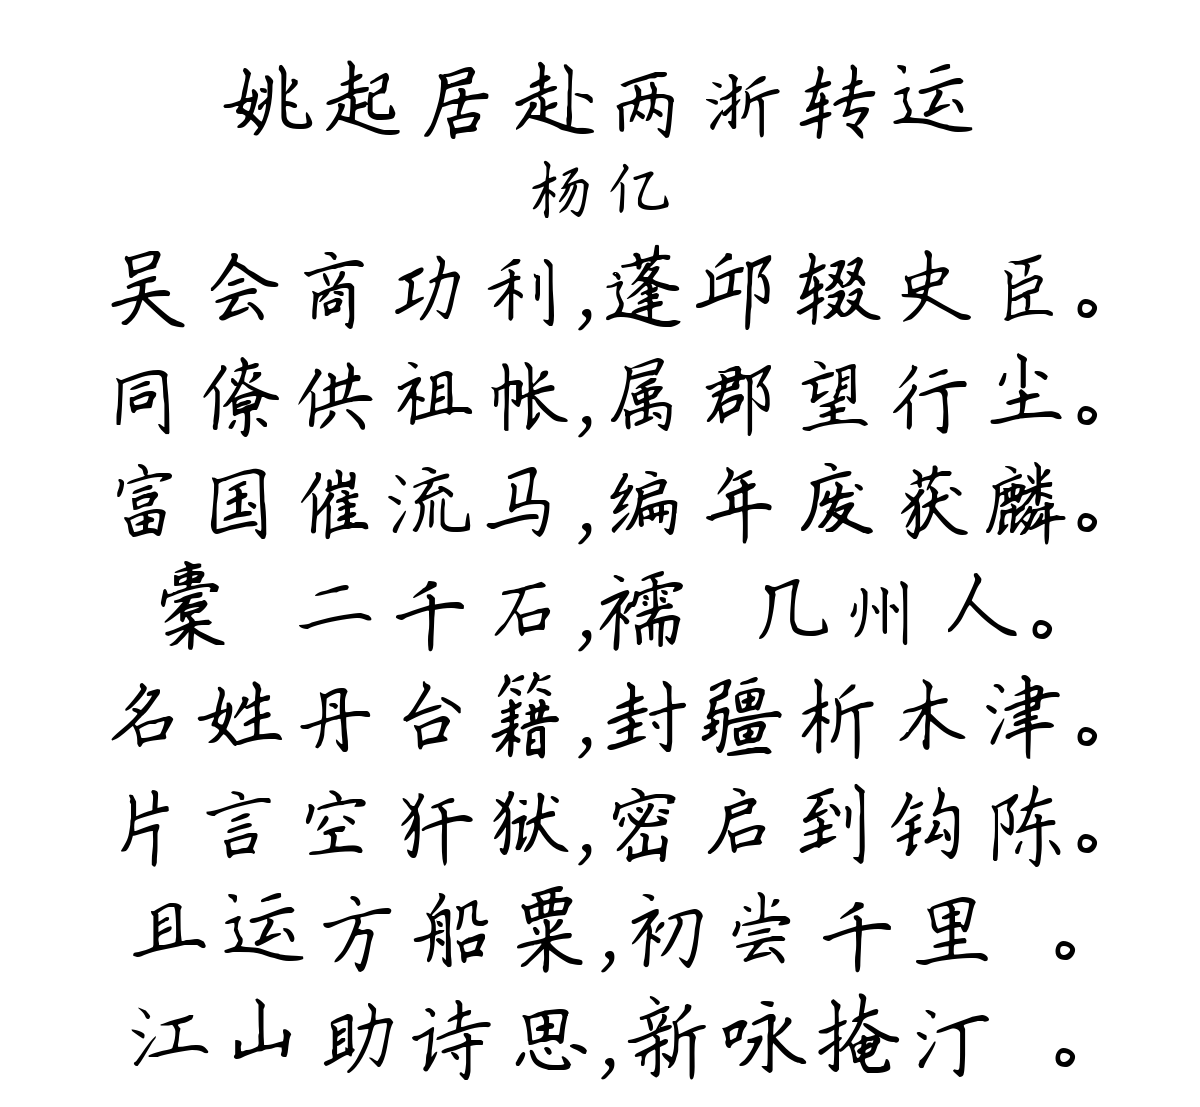 姚起居赴两浙转运
杨亿
吴会商功利,蓬邱辍史臣。
同僚供祖帐,属郡望行尘。
富国催流马,编年废获麟。
橐 二千石,襦 几州人。
名姓丹台籍,封疆析木津。
片言空犴狱,密启到钩陈。
且运方船粟,初尝千里 。
江山助诗思,新咏掩汀 。